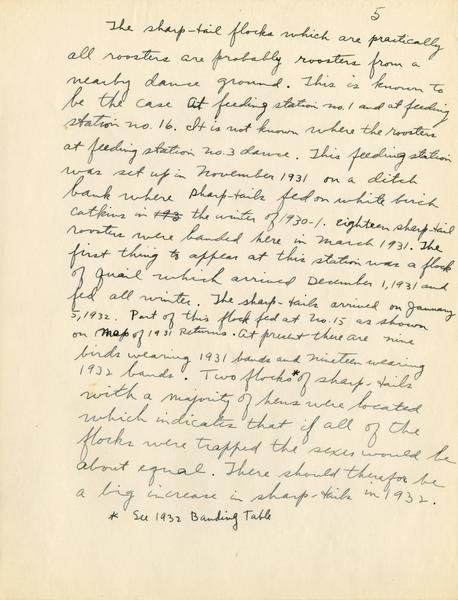 5
The sharp-tail flocks which are practically
all roosters are probably roosters from a
nearby dance ground. This is known to
be the case At feeding station no. 1 and at feeding
station no. 16. It is not known where the roosters
at feeding station no. 3 dance. This feeding station
was set up in November 1931 on a ditch
bank where sharp-tails fed on white birch
catkins in the winter of 1930-1. Eighteen sharp-tail
roosters were banded here in March 1931. The
first thing to appear at this station was a flock
of quail which arrived December 1, 1931 and
fed all winter. The sharp-tails arrived on January
5, 1932. Part of this flock fed at no. 15 as shown
on map of 1931 Returns. At present there are nine
birds wearing 1931 bands and nineteen wearing
1932 bands. Two flocks* of sharp-tails
with a majority of hens were located
which indicates that if all of the
flocks were trapped the sexes would be
about equal. There should therefor be
a big increase in sharp-tails in 1932.
* See 1932 Banding Table